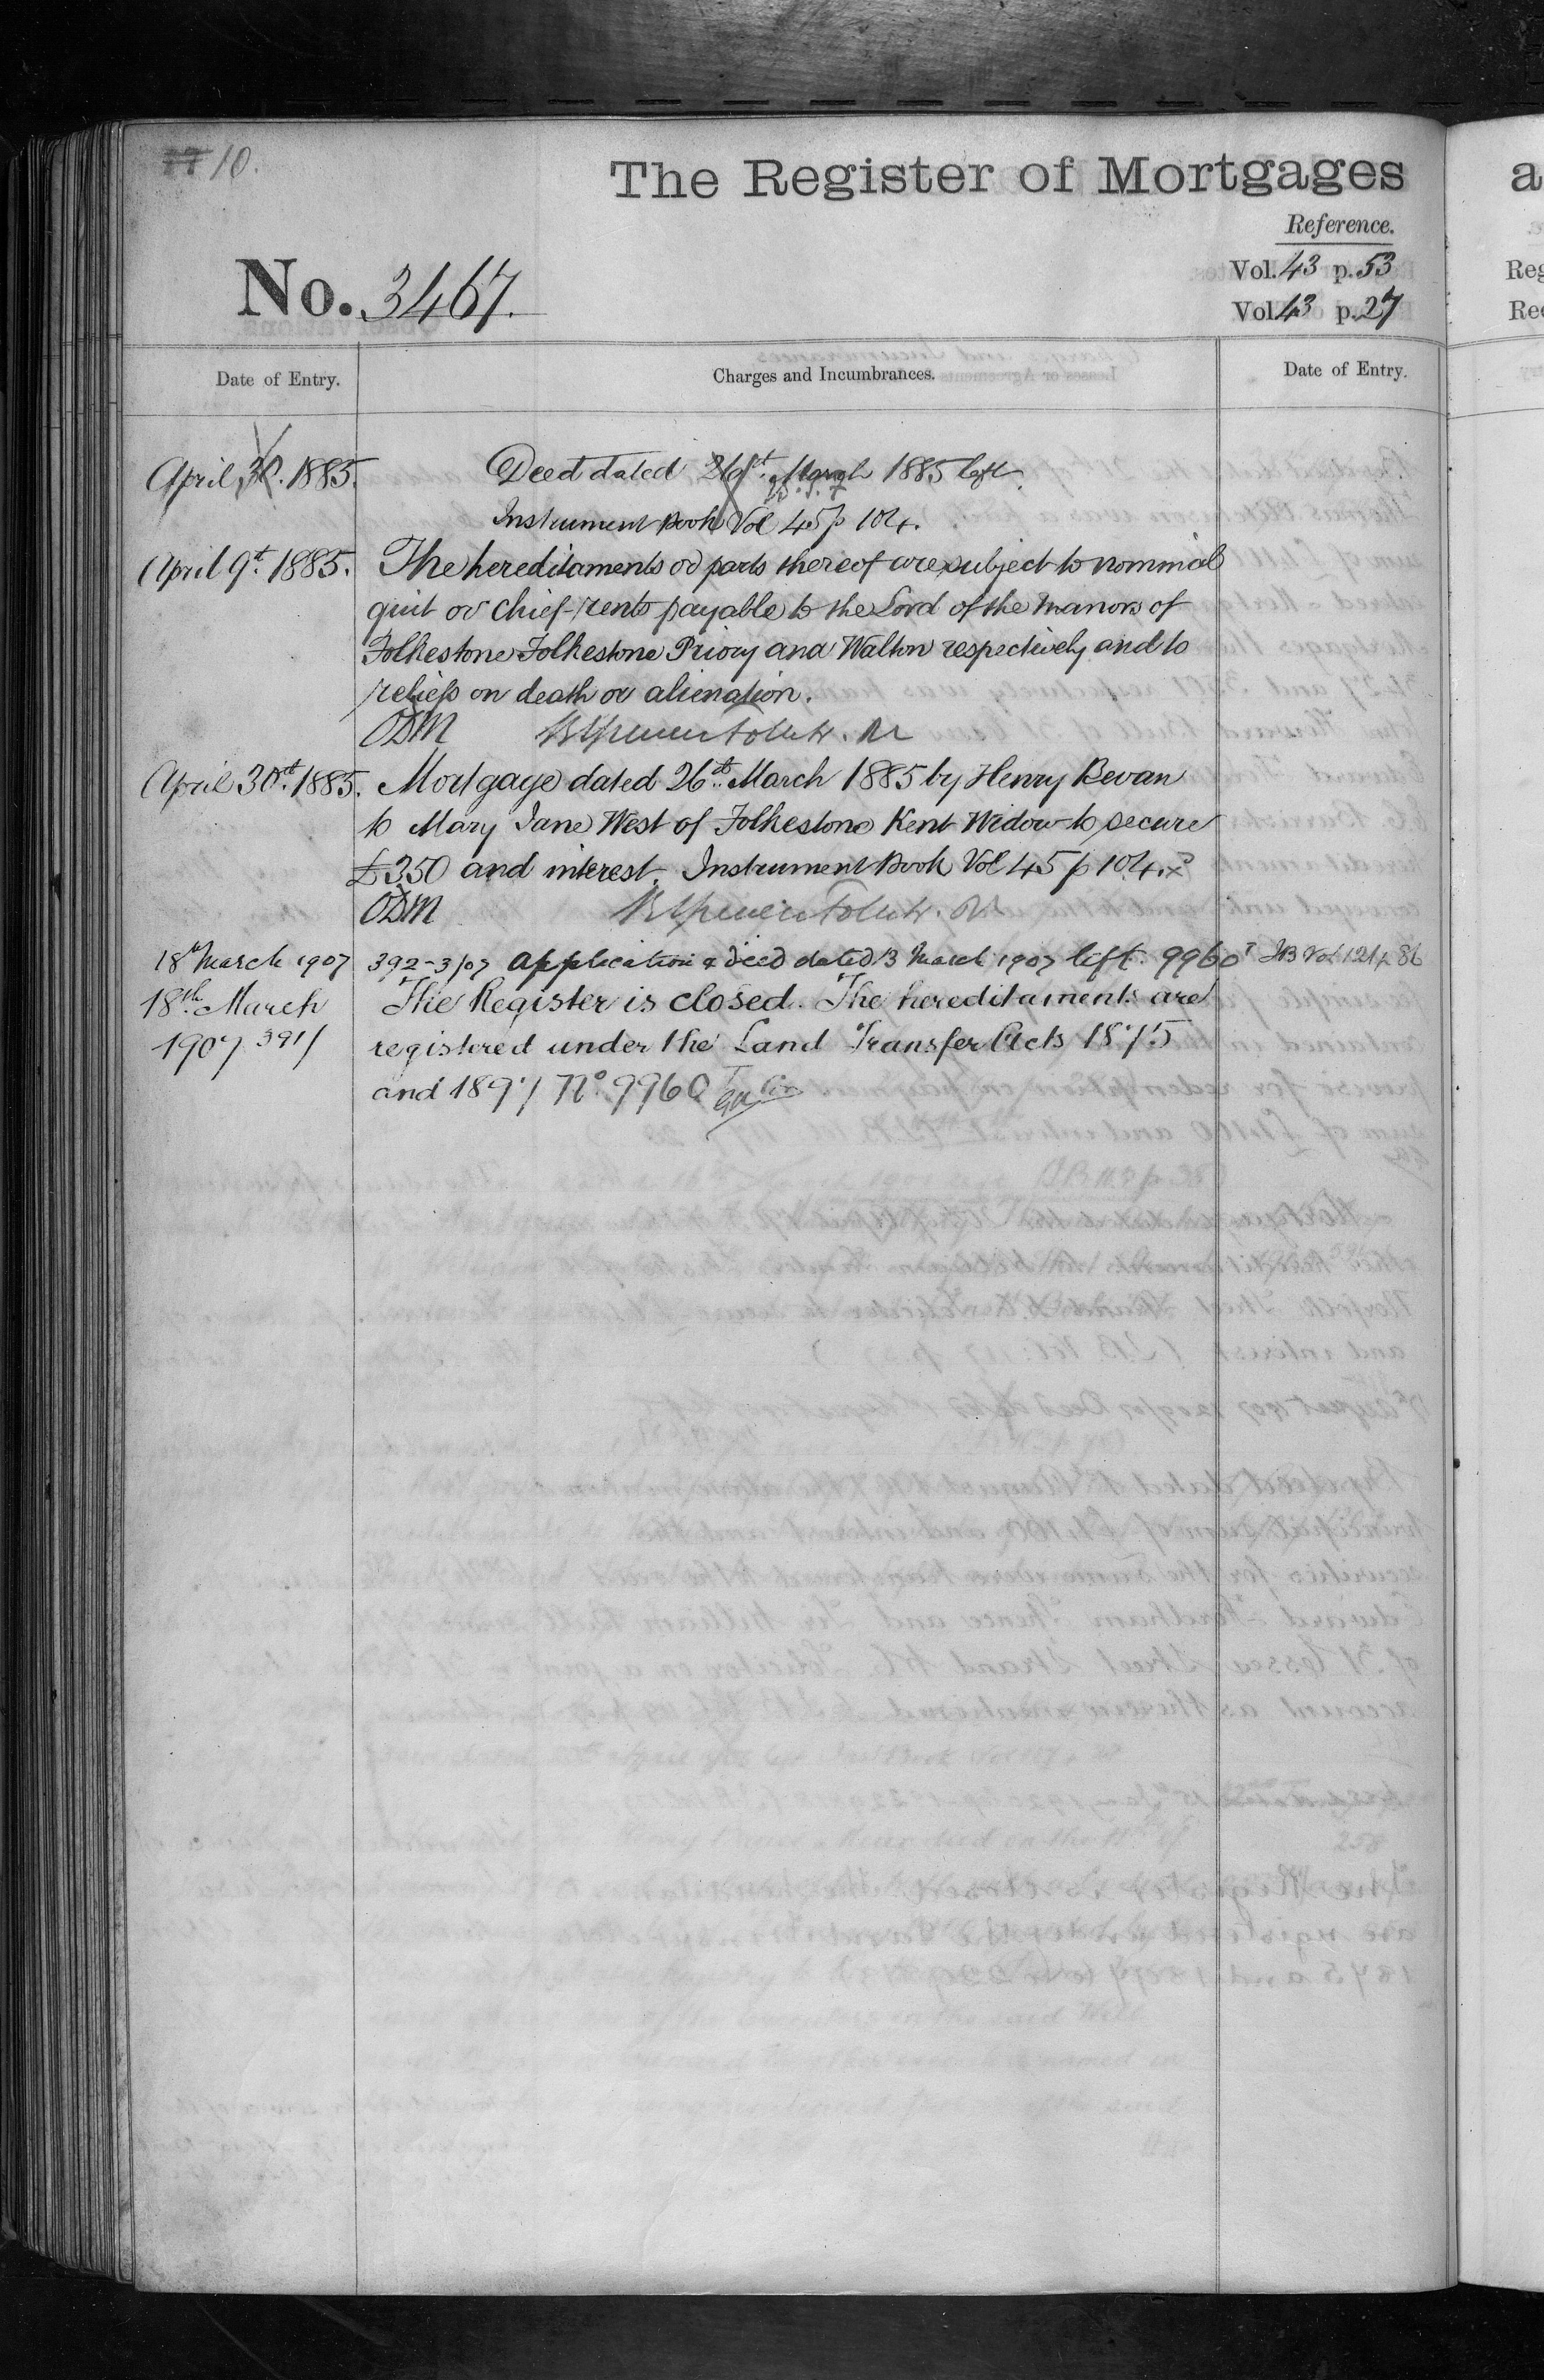 10.
The Register of Mortgages
Reference.
No. 3467.
Vol. 43 p. 53
Vol. 43 p. 27
Date of Entry.
Charges and Incumbrances.
Date of Entry.
April 30. 1885.
Deed dated 26th March 1885 left.
Instrument Book Vol 45 p 104.
April 9th 1885.
The hereditaments or parts thereof are subject to nominal
quit or chief-rents payable to the Lord of the Manors of
Folkestone Folkestone Priory and Walton respectively and to
reliefs on death or alienation.
ODM
April 30th 1885.
Mortgage dated 26th March 1885 by Henry Bevan
to Mary Jane West of Folkestone Kent Widow to secure
£350 and interest. Instrument Book Vol 45 p 104.
ODM
18th March 1907
392-3/07 application & deed dated 13 March 1907 left. 9960 IB Vol 121 p 86
18th March
1907 391/
The Register is closed. The hereditaments are
registered under the Land Transfer Acts 1875
and 1897 No. 9960
a
Reg
Rec